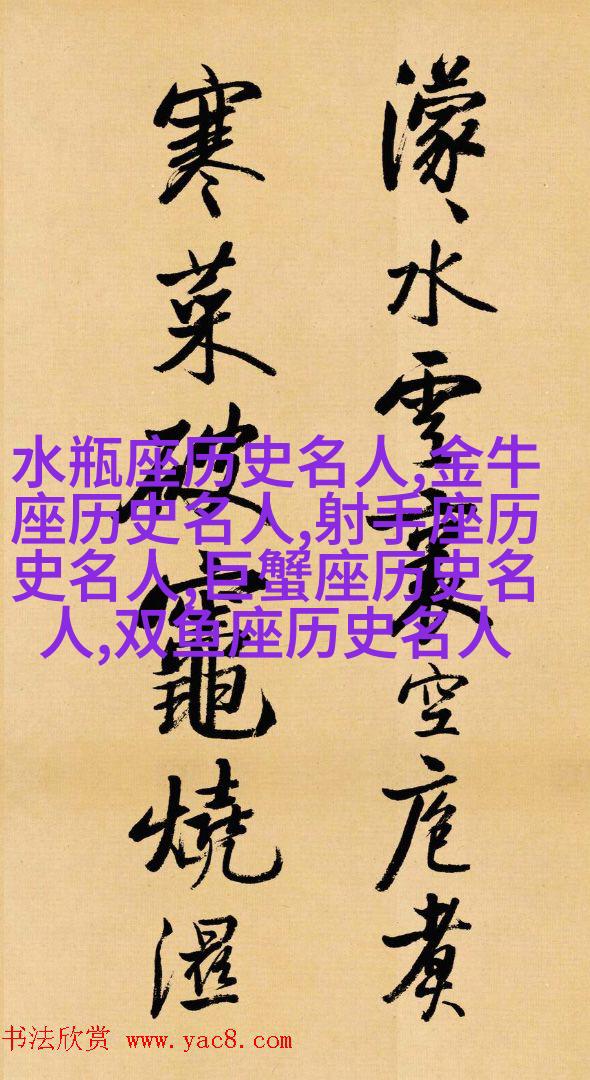 濛〻水雲裏空庖煮
寒菜破竈燒濕
水瓶座历史名人,金牛
座历史名人,射手座历
史名人,巨蟹座历史名
人,双鱼座历史名人
书法欣赏 www.yac8.com